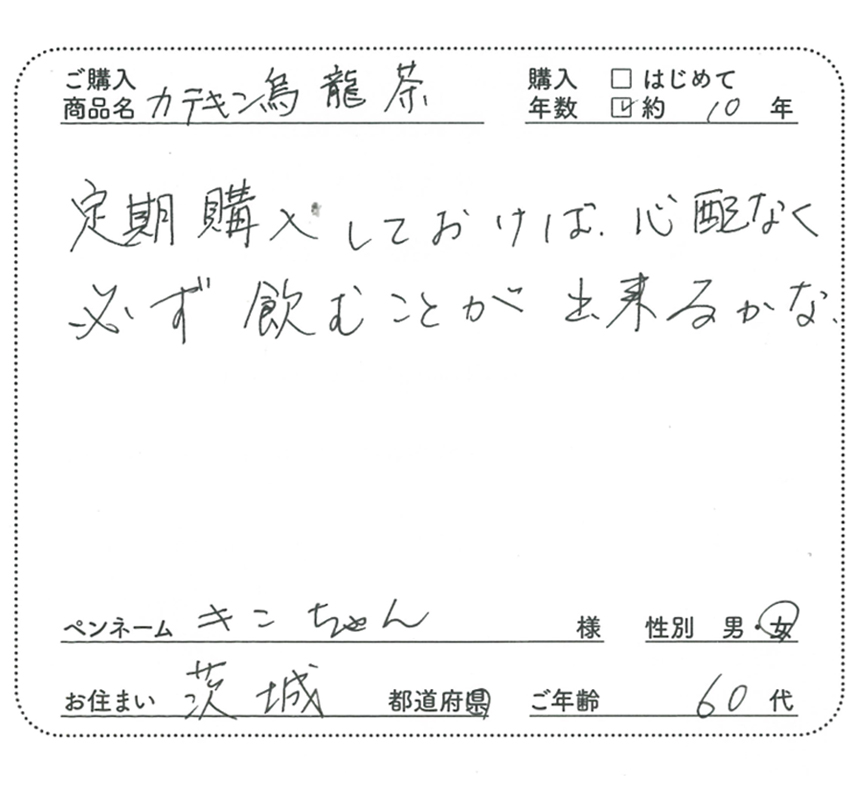 ご購入 商品名 カテキン烏龍茶
購入 年数 □はじめて ☑約 10 年
定期購入しておけば、心配なく
必ず飲むことが出来るかな、
ペンネーム キンちゃん 様 性別 男・女
お住まい 茨城 都道府県 ご年齢 60 代